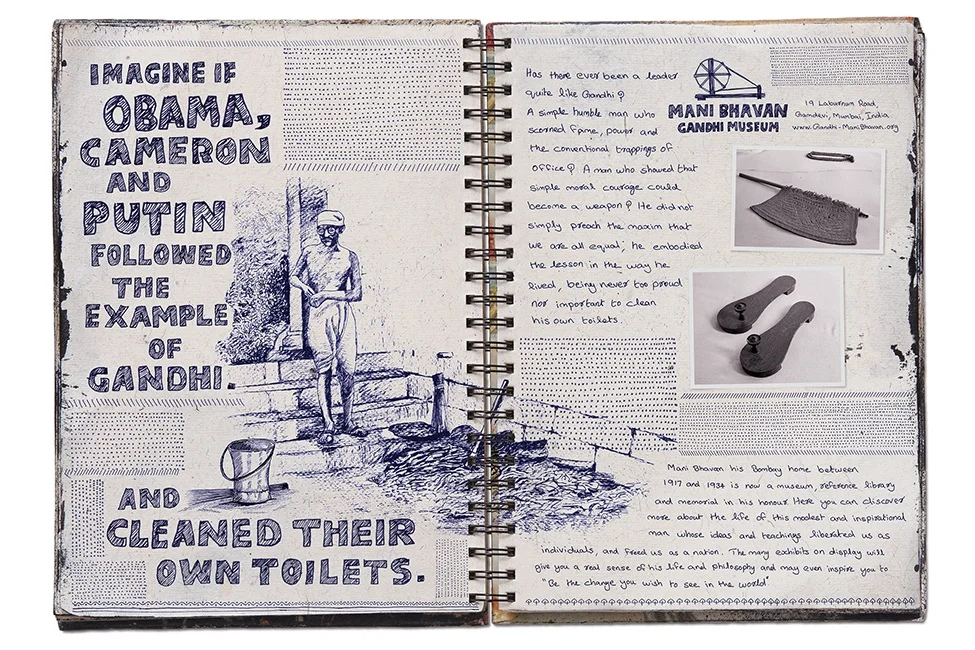 IMAGINE IF
OBAMA,
CAMERON
AND
PUTIN
FOLLOWED
THE
EXAMPLE
OF
GANDHI.
AND
CLEANED THEIR
OWN TOILETS.
Has there ever been a leader
quite like Gandhi?
A simple humble man who
scorned fame, power and
the conventional trappings of
office? A man who showed that
simple moral courage could
become a weapon? He did not
simply preach the maxim that
we are all equal, he embodied
the lesson in the way he
lived, being never too proud
nor important to clean
his own toilets.
MANI BHAVAN
GANDHI MUSEUM
19 Laburnum Road,
Gamdevi, Mumbai, India.
www.Gandhi-ManiBhavan.org
Mani Bhavan his Bombay home between
1917 and 1934 is now a museum, reference library
and memorial in his honour. Here you can discover
more about the life of this modest and inspirational
man whose ideas and teachings liberated us as
individuals, and freed us as a nation. The many exhibits on display will
give you a real sense of his life and philosophy and may even inspire you to
"Be the change you wish to see in the world"